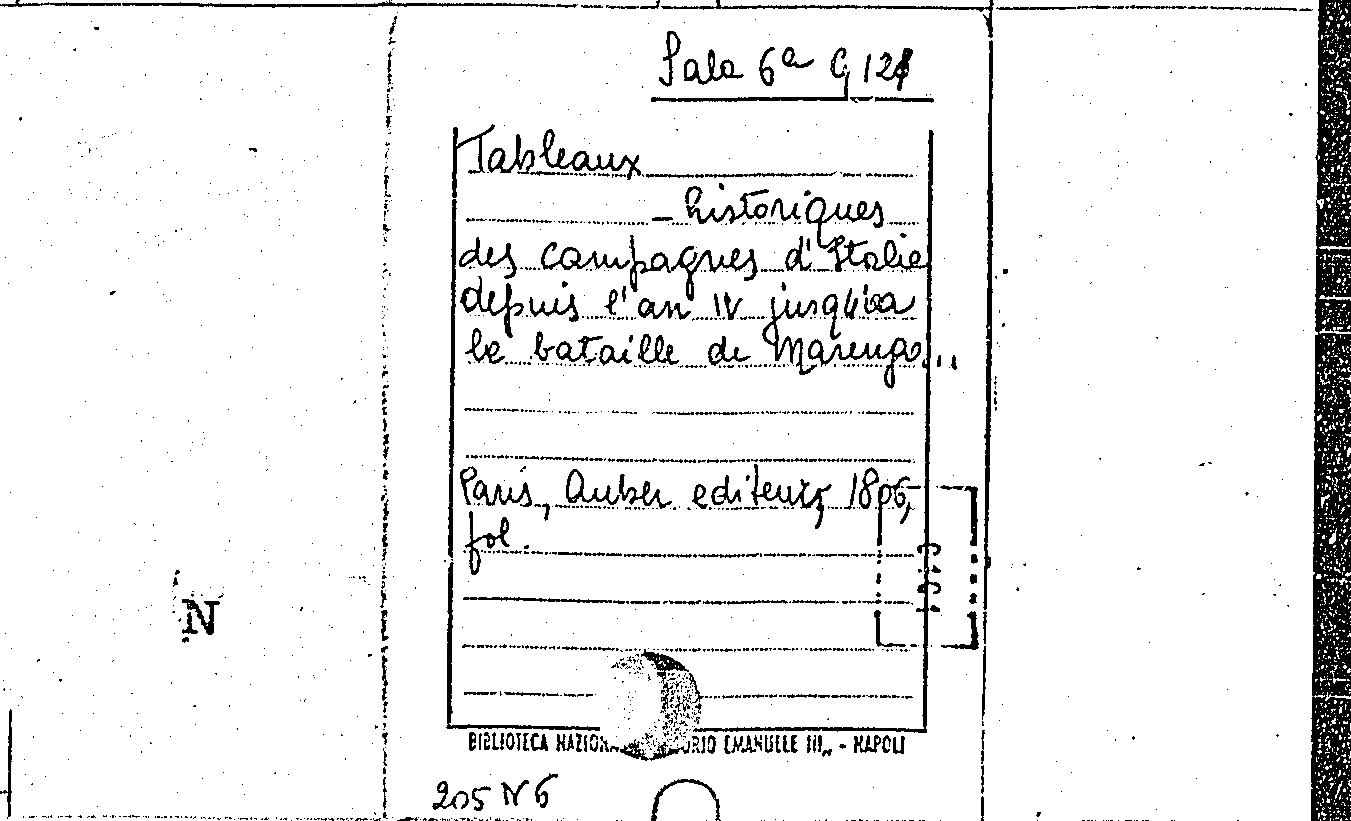 Sala 6a G 121
Tableaux
- historiques
des campagnes d'Italie
depuis l'an IV jusqu'a
le bataille de Marengo...
Paris, Auber editeur, 1806,
fol.
N
BIBLIOTECA NAZION ORIO EMANUELE III„ - NAPOLI
205 N 6